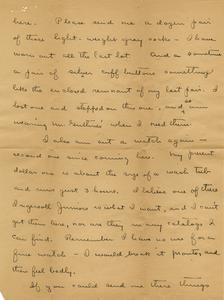 here. Please send me a dozen pair
of those light-weight gray socks - I have
worn out all the last lot. And a
a pair of silver cuff buttons something
like the enclosed remnant of my last pair. I
lost one and stepped on this one, and am
wearing when I need them.
I also am out a watch again -
second one since coming here. My present
dollar one is about the size of a wash tub
and runs just 3 hours. I believe one of those
Ingersoll Juniors is what I want, and I can't
get them here, nor are they in any catalogs I
can find. Remember I have no use for a
fine watch - I would break it pronto, and
then feel badly.
If you could send me these things